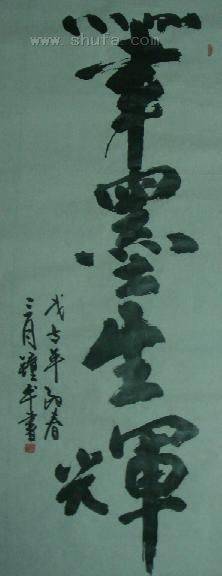 www.shufa.com
筆墨生輝
戊午年初春
三月鐘平書